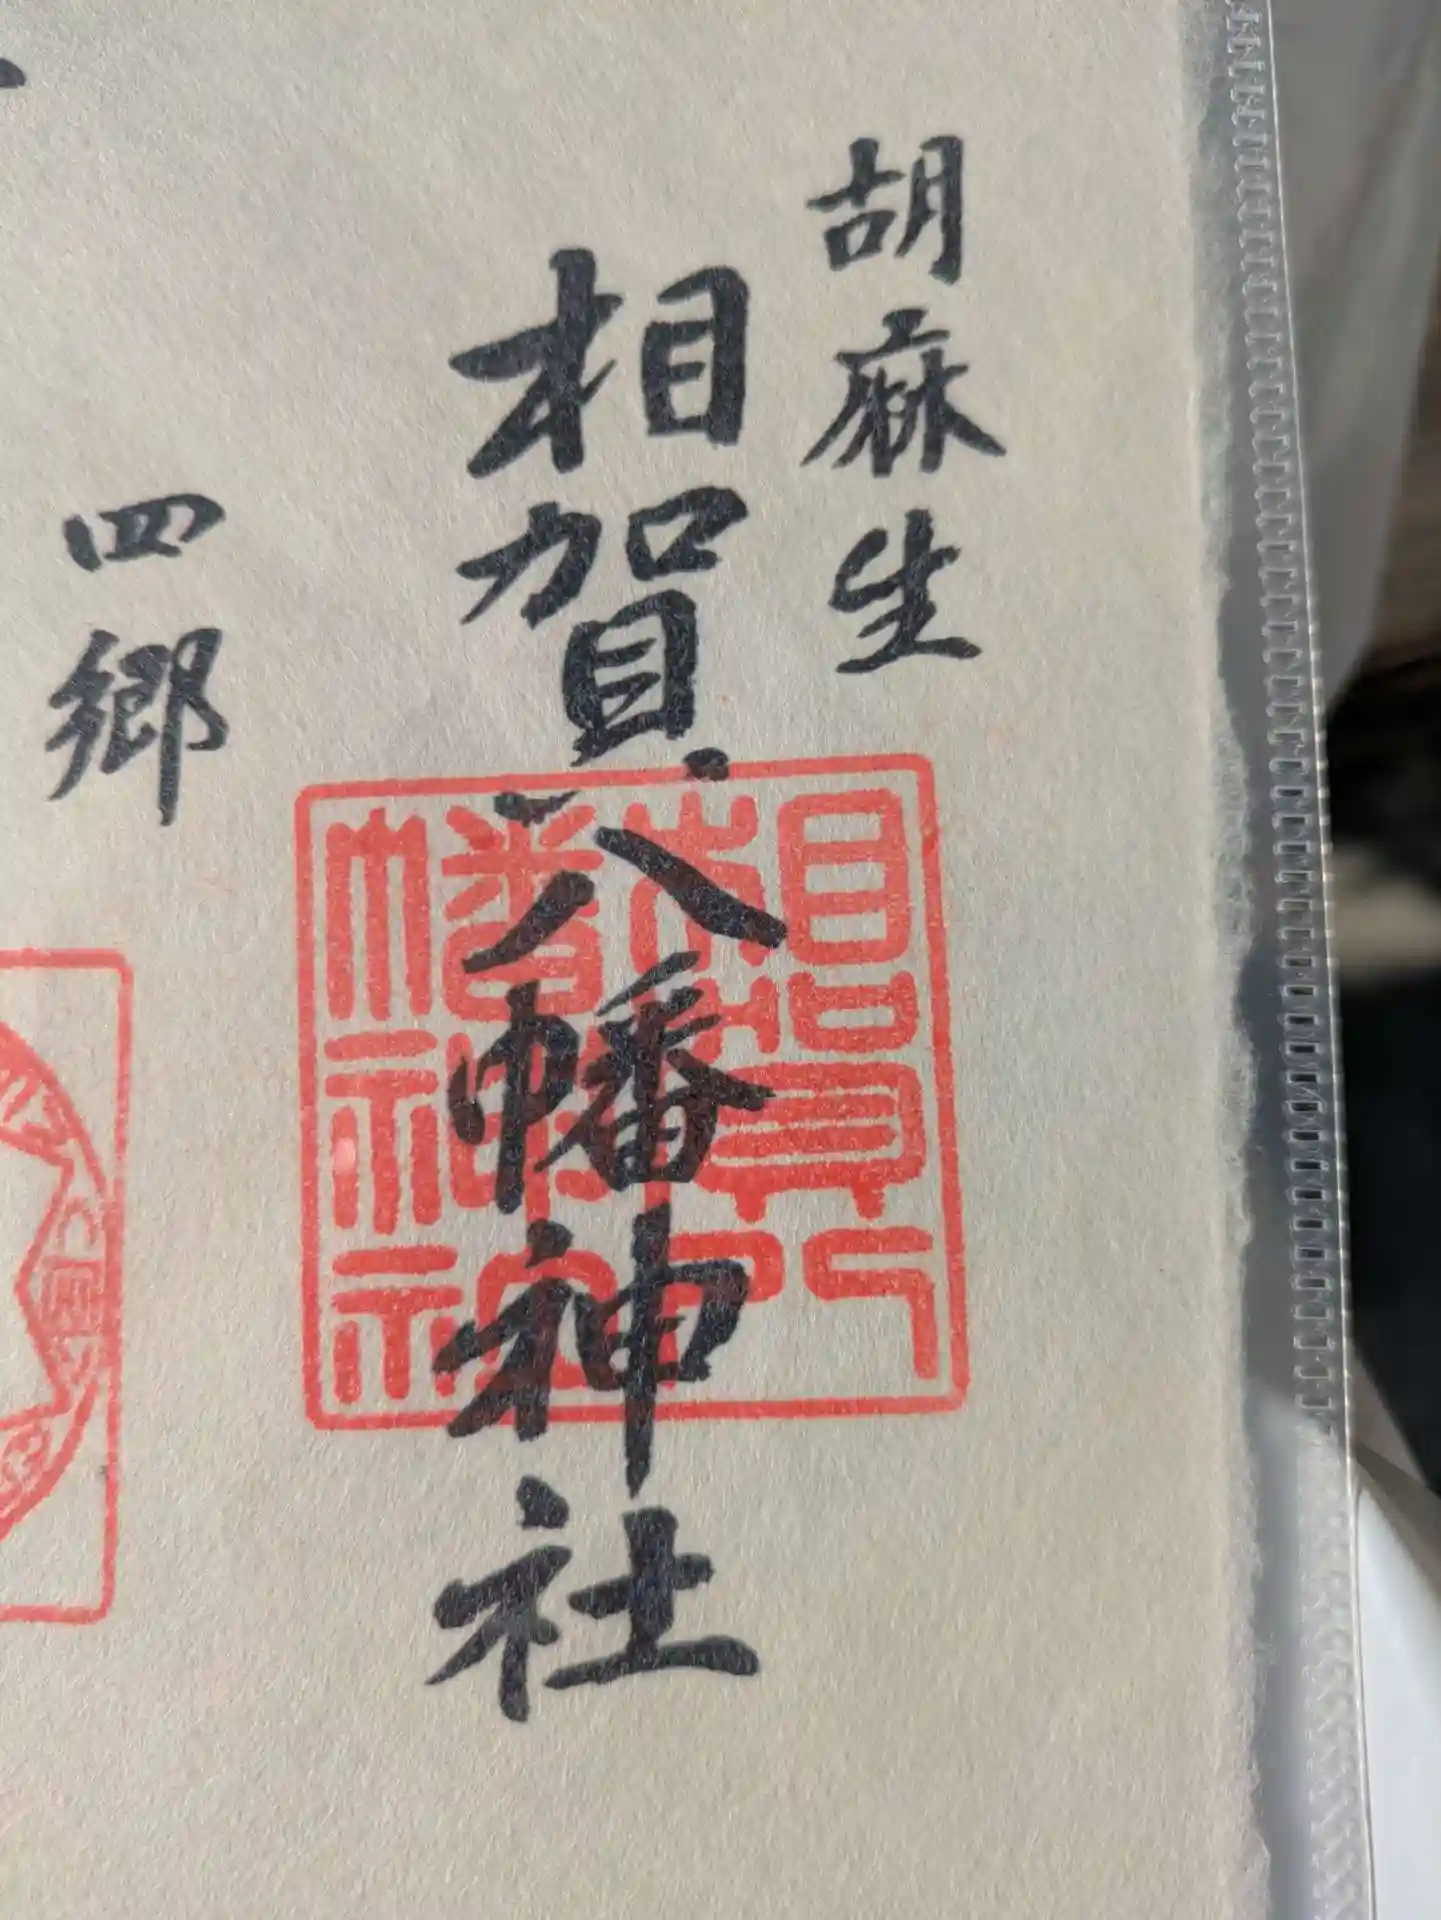 胡麻生
相賀八幡神社
相賀八幡神社
四郷